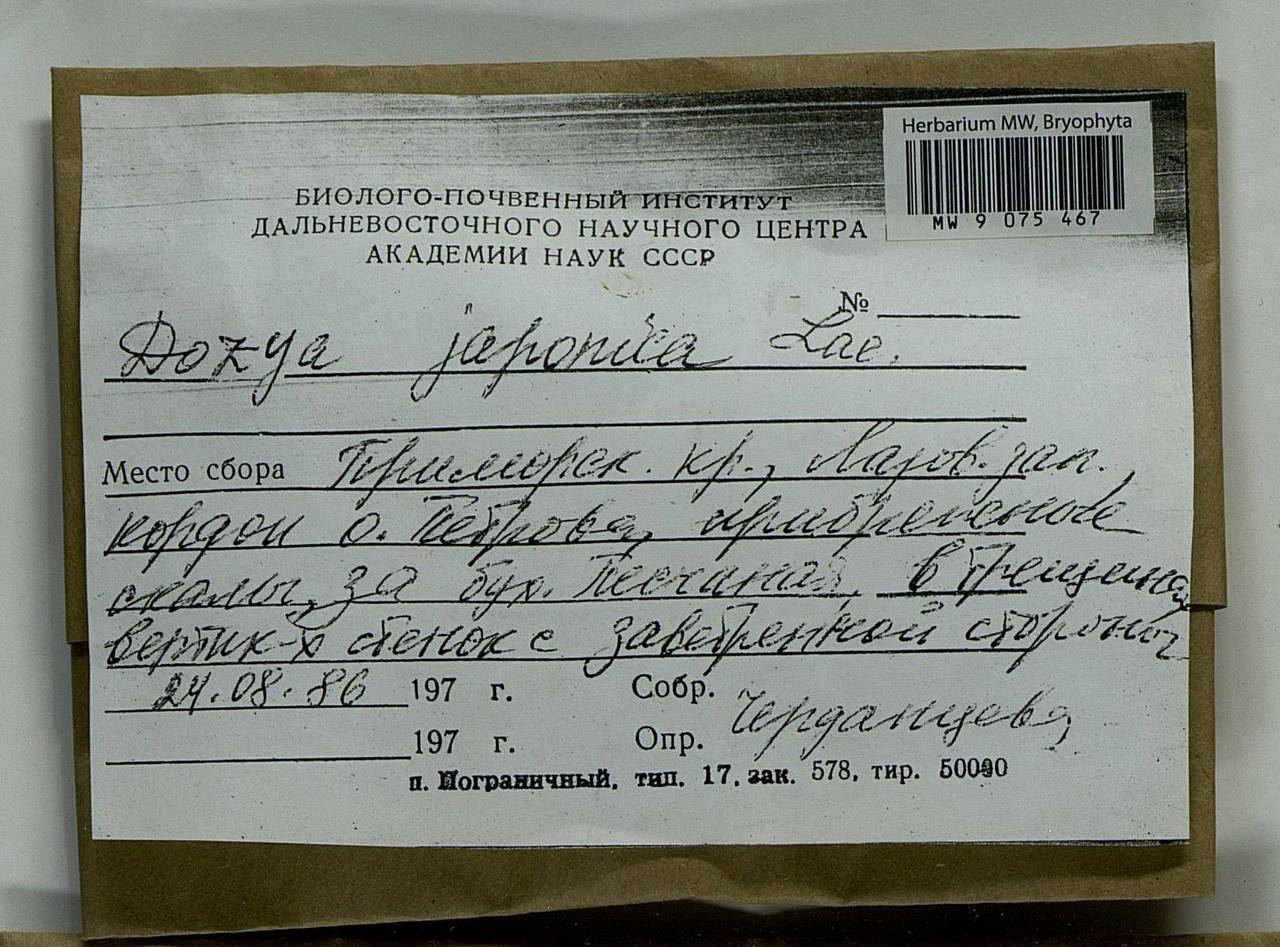 Herbarium MW, Bryophyta
MW 9 075 467
БИОЛОГО-ПОЧВЕННЫЙ ИНСТИТУТ
ДАЛЬНЕВОСТОЧНОГО НАУЧНОГО ЦЕНТРА
АКАДЕМИИ НАУК СССР
№
Dozya japonica Lac.
Место сбора Приморск. кр., Лазов. зап.,
кордон о. Петрова, прибрежные
скалы, за бух. Песчаная, в трещинах
вертик-х стенок с заветренной стороны
24.08.86 197 г. Собр. Черданцева
197 г. Опр.
п. Пограничный, тип. 17, зак. 578, тир. 50000